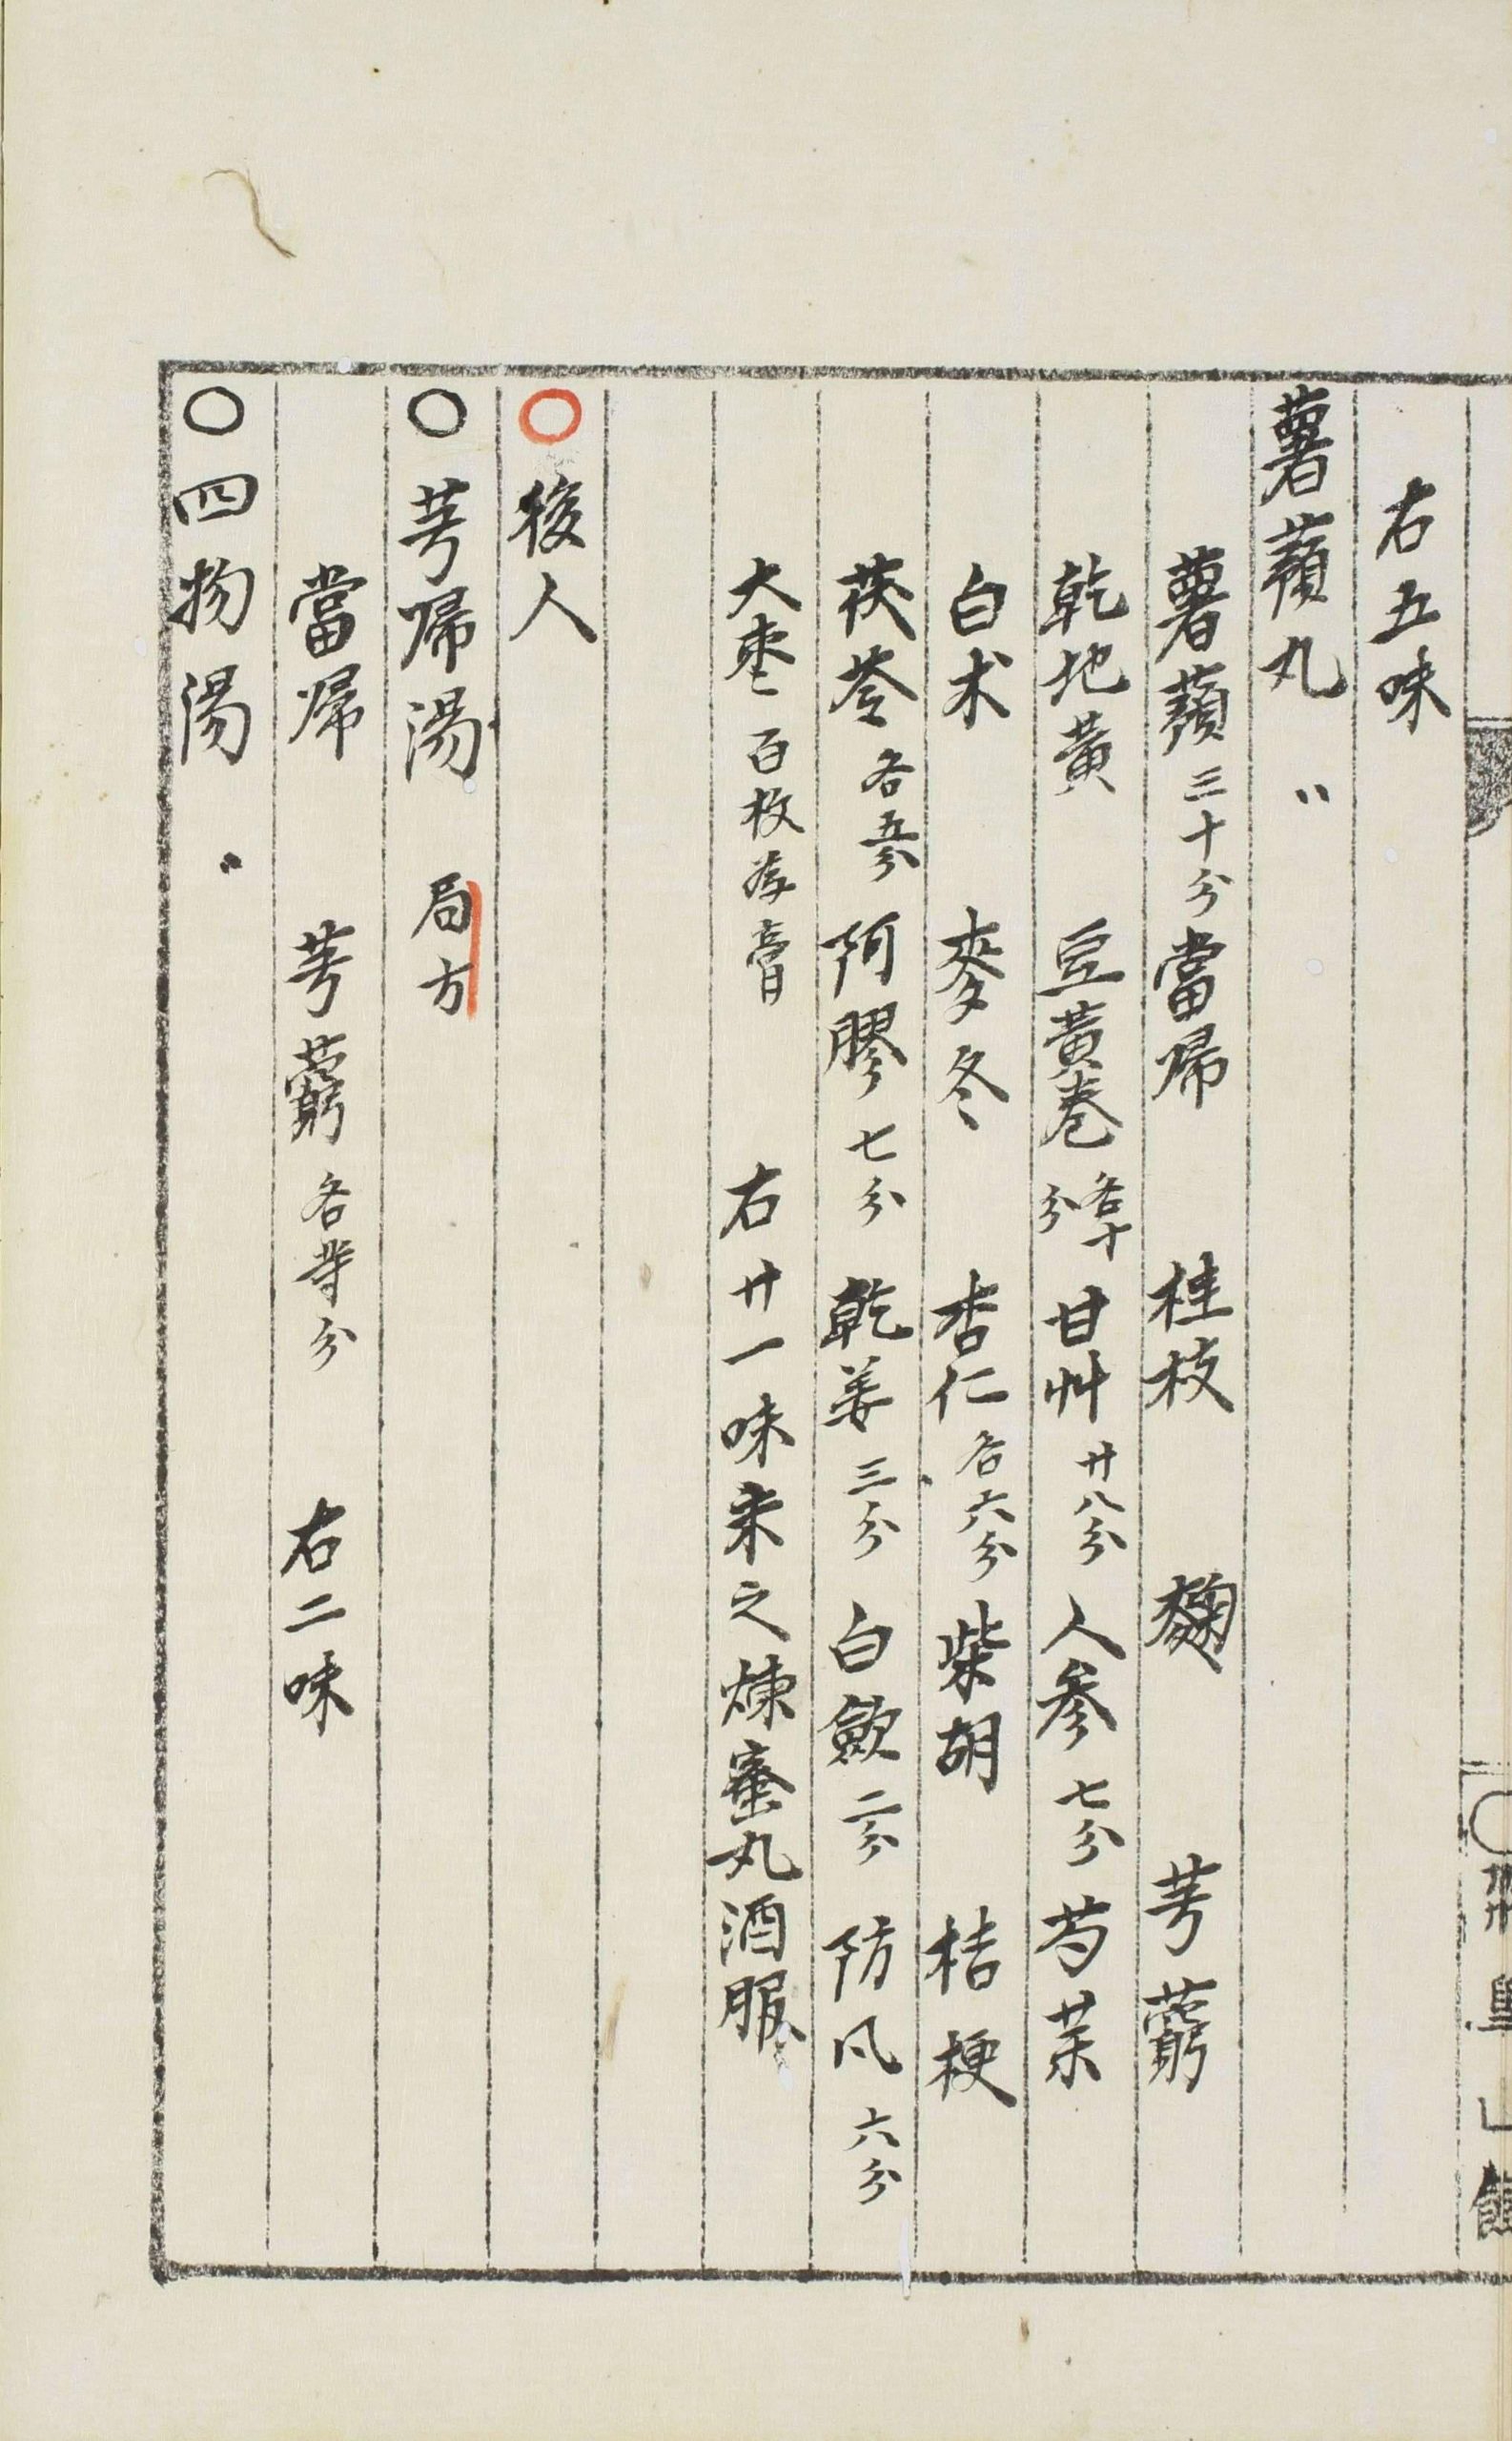 右五味
薯蕷丸〃
薯蕷三十分當帰 桂枝 麴 芎藭
乾地黄 豆黄巻各十分甘艸廿八分人参七分芍薬
白术 麥冬 杏仁各六分柴胡 桔梗
茯苓各五分阿膠七分乾姜三分白歛二分防风六分
大棗百枚為膏 右廿一味末之煉蜜丸酒服
○後人
○芎帰湯 局方
當帰 芎藭各等分 右二味
○四物湯〃
皇山館